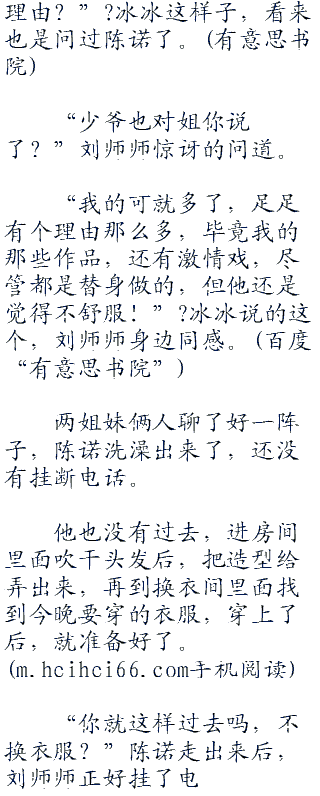 理由？”?冰冰这样子，看来
也是问过陈诺了。(有意思书
院)
“少爷也对姐你说
了？”刘师师惊讶的问道。
“我的可就多了，足足
有个理由那么多，毕竟我的
那些作品，还有激情戏，尽
管都是替身做的，但他还是
觉得不舒服！”?冰冰说的这
个，刘师师身边同感。(百度
“有意思书院”)
两姐妹俩人聊了好一阵
子，陈诺洗澡出来了，还没
有挂断电话。
他也没有过去，进房间
里面吹干头发后，把造型给
弄出来，再到换衣间里面找
到今晚要穿的衣服，穿上了
后，就准备好了。
(m.hcihci66.com手机阅读)
“你就这样过去吗，不
换衣服？”陈诺走出来后，
刘师师正好挂了电